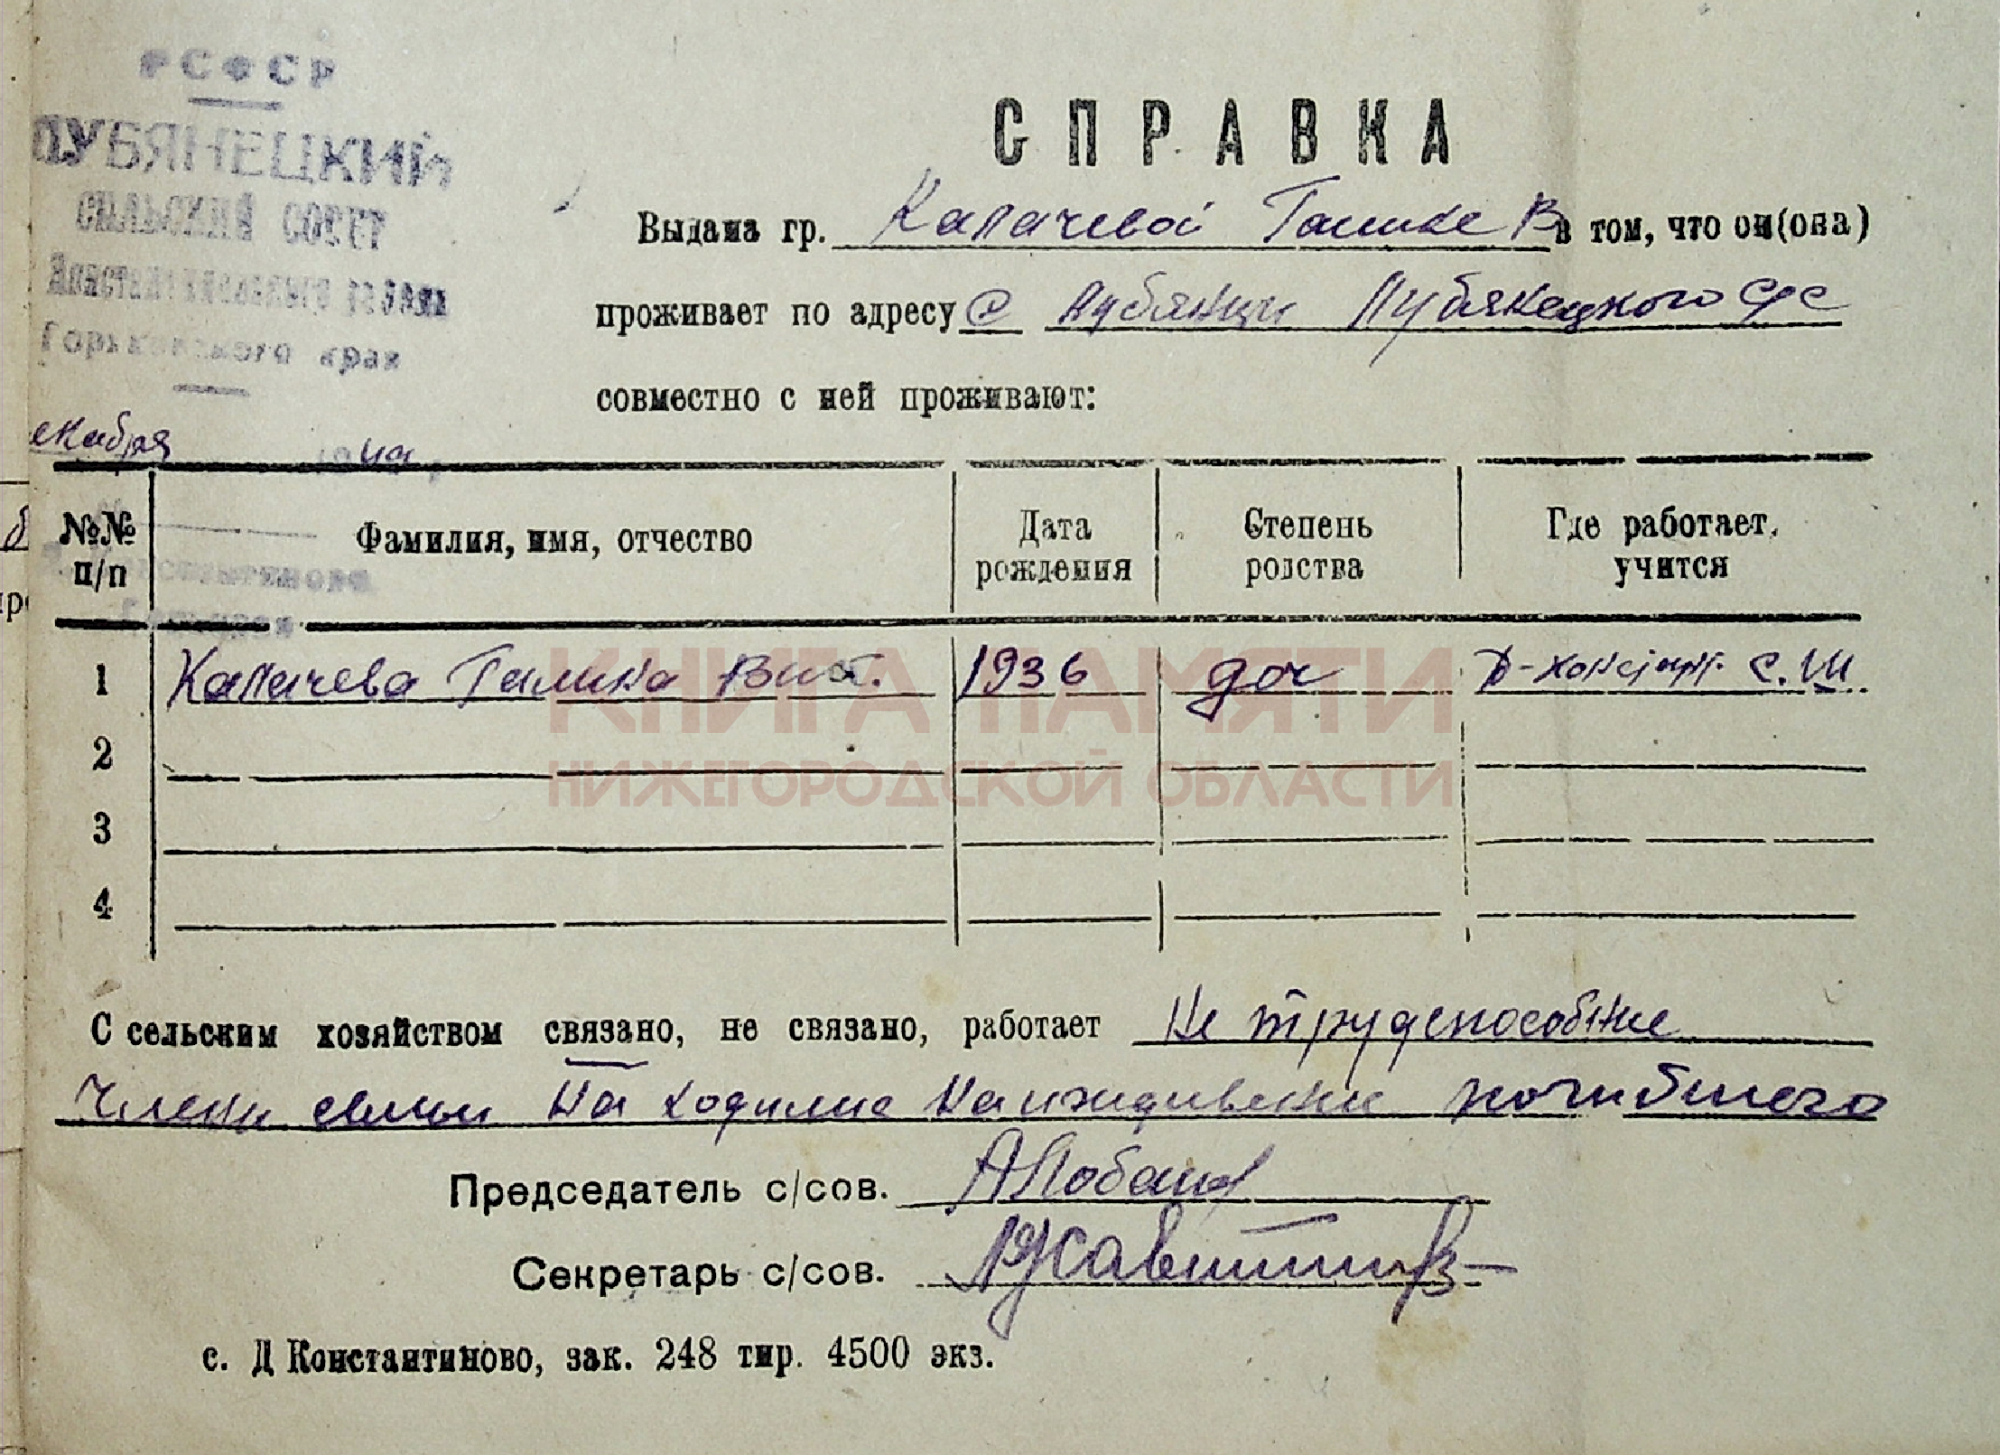 РСФСР
ЛУБЯНЕЦКИЙ
СЕЛЬСКИЙ СОВЕТ
Константиновского района
Горьковского края
екабря 194
СПРАВКА
Выдана гр. Калачевой Галине В в том, что он(она)
проживает по адресу с Лубянцы Лубянецкого с/с
совместно с ней проживают:
№№ п/п
Фамилия, имя, отчество
Дата рождения
Степень родства
Где работает, учится
1 Калачева Галина Вит. 1936 доч Д-Констант. С.Ш.
2
3
4
КНИГА ПАМЯТИ
НИЖЕГОРОДСКОЙ ОБЛАСТИ
С сельским хозяйством связано, не связано, работает Не трудспособные
Члены семьи На ходилис На иждивении погибшего
Председатель с/сов. АЛобанов
Секретарь с/сов.
с. Д Константиново, зак. 248 тир. 4500 экз.